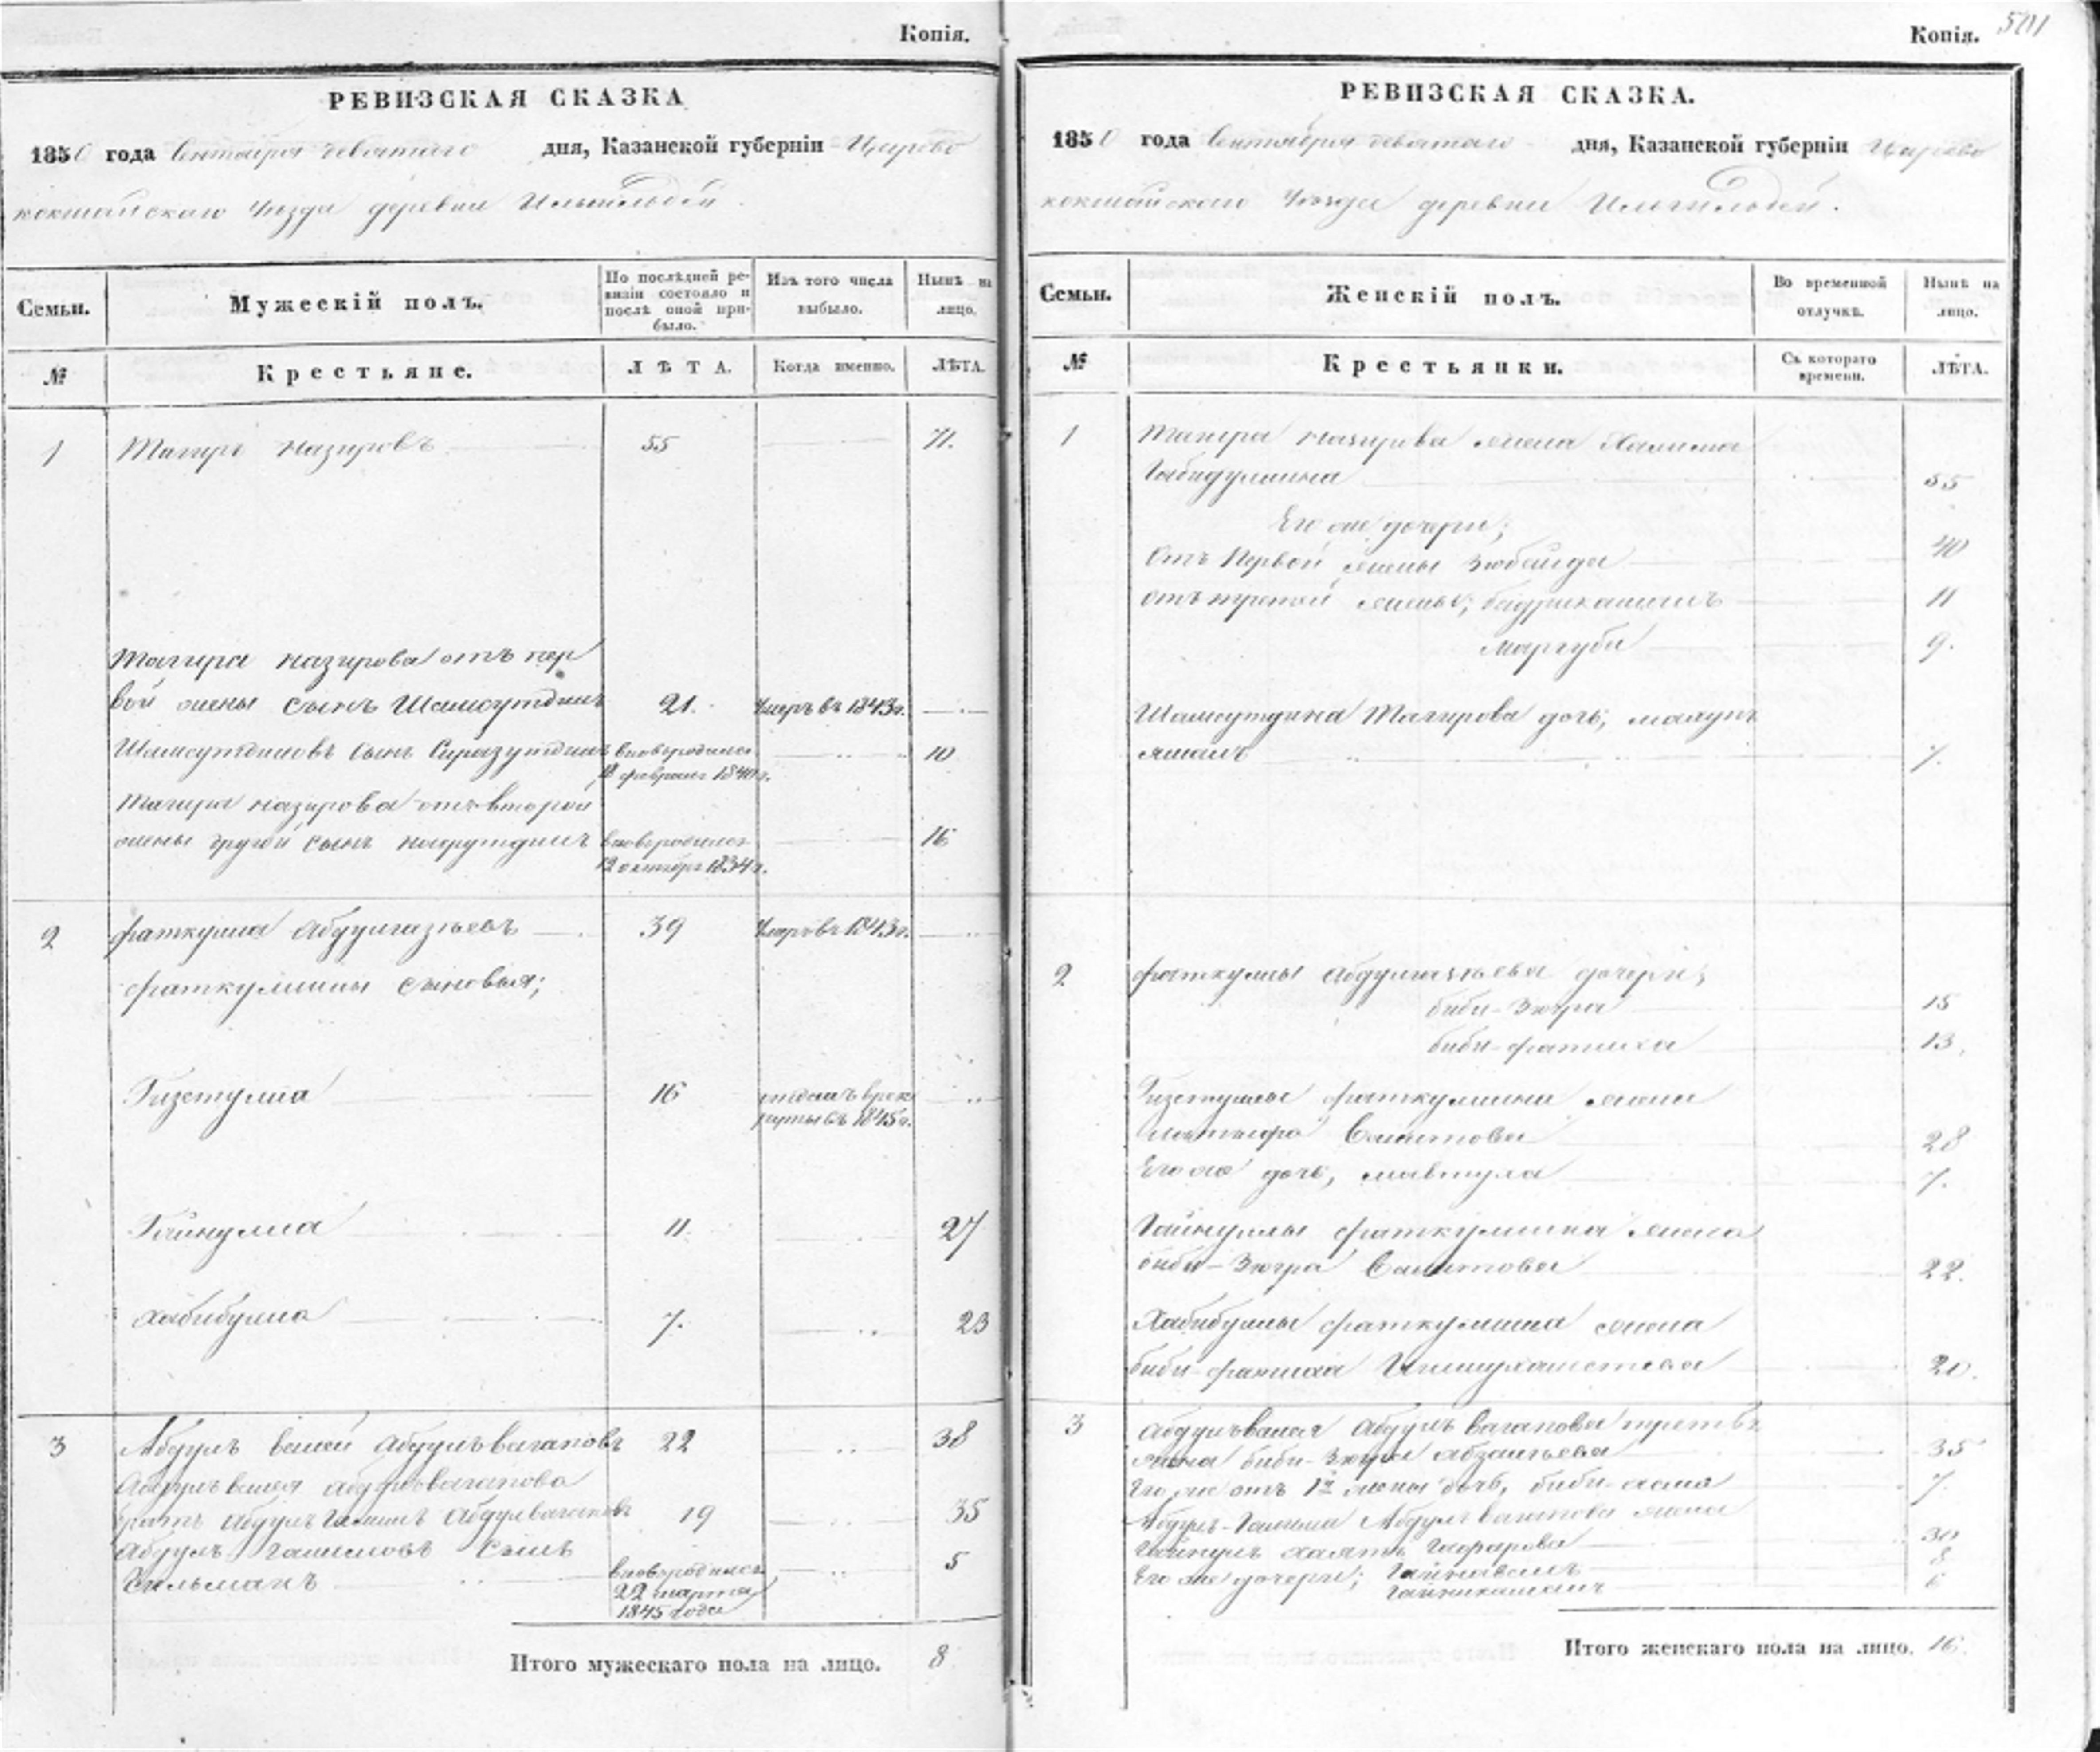 Копія.
РЕВИЗСКАЯ СКАЗКА
1850 года Сентября девятаго дня, Казанской губерніи Царево
кокшайскаго Уѣзда деревни
Семьи.
Мужескій полъ.
По послѣдней ре-
визіи состояло и
послѣ оной при-
было.
Изъ того числа
выбыло.
Нынѣ на
лицо.
№
Крестьяне.
ЛѢТА.
Когда именно.
ЛѢТА.
1 Тагиръ Назировъ 55 71.
Тагира Назирова отъ пер
вой жены сынъ Шамсутдинъ 21. Умеръ въ 1843 г.
Шамсутдиновъ сынъ Сиразутдинъ вновьродился 10
18 февраля 1840 г.
Тагира Назирова от второй
жены другой сынъ вновьродился 16
12 октября 1834 г.
2 Фаткулла Абдулгазыевъ 39 Умеръ въ 1843 г.
Фаткуллины сыновья;
Гизетулла 16 отданъ врек
руты въ 1845 г.
Гайнулла 11. 27
Хабибулла 7. 23
3 Абдулъ Валей Абдулъвагаповъ 22 38
Абдулъвалея Абдулъвагапова
братъ Абдулъ Галимъ Абдулвагаповъ 19 35
Абдулъ Галимовъ сынъ
Гильманъ вновьродился 5
22 марта
1845 года
Итого мужескаго пола на лицо. 8.
501
Копія.
РЕВИЗСКАЯ СКАЗКА.
1850 года Сентября девятаго дня, Казанской губерніи Царево
кокшайскаго Уѣзда деревни
Семьи.
Женскій полъ.
Во временной
отлучкѣ.
Нынѣ на
лицо.
№
Крестьянки.
Съ котораго
времени.
ЛѢТА.
1 Тагира Назирова жена Халима
Габидуллина 55
Его же дочери;
Отъ Первой жены Зюбаида 40
отъ третей жены; Бадрикамалъ 11
Маргуба 9.
Шамсутдина Тагирова дочь,
жамалъ 7.
2 Фаткуллы Абдулгазыева дочери;
Биби-Зюгра 15
Биби-Фатиха 13.
Гизетуллы Фаткуллина жена
Саитова 28
Его же дочь, 7.
Гайнуллы Фаткуллина жена
Биби-Зюгра Саитова 22.
Хабибуллы Фаткуллина жена
Биби-Фатиха Ишмухаметева 20.
3 Абдулъвалея Абдулъ Вагапова третья
жена Биби-Зюгра 35
Его же отъ 1й жены дочь, Биби-Асма 7.
Абдулъ-Галима Абдулъ Вагапова жена
Гайнулъ Хаятъ Гафарова 30
Его же дочери; 8
Гайникамалъ 6
Итого женскаго пола на лицо. 16.